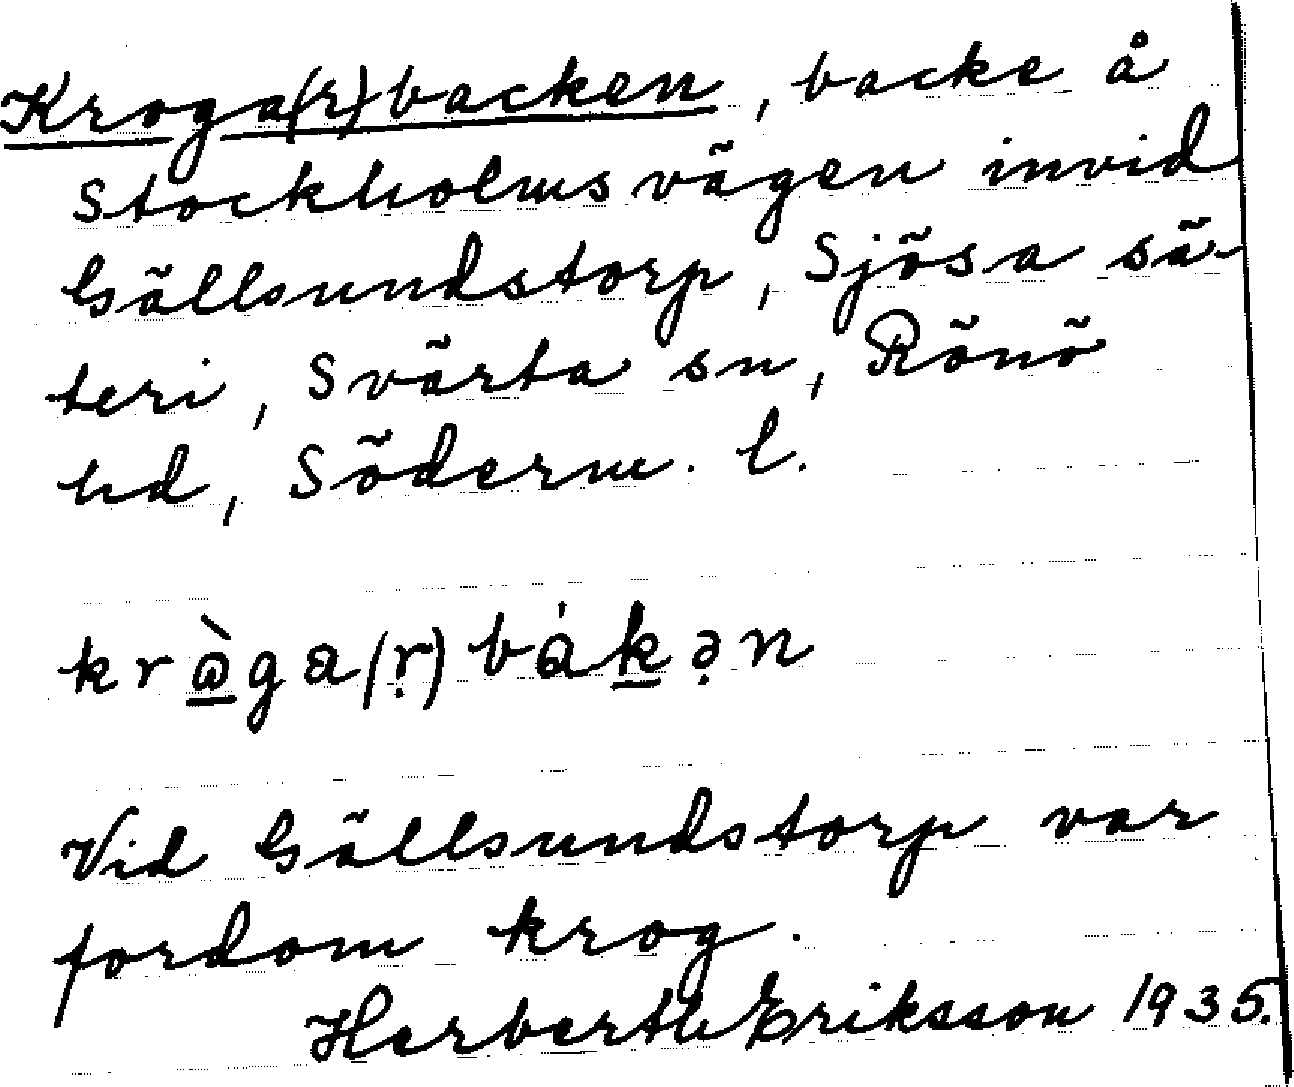 Kroga(r)backen, backe å
Stockholmsvägen invid
Gällsundstorp, Sjösa sä-
teri, Svärta sn, Rönö
hd, Söderm. l.
kròga(ṛ)bákə̣n
Vid Gällsundstorp var
fordom krog.
Herberth Eriksson 1935.